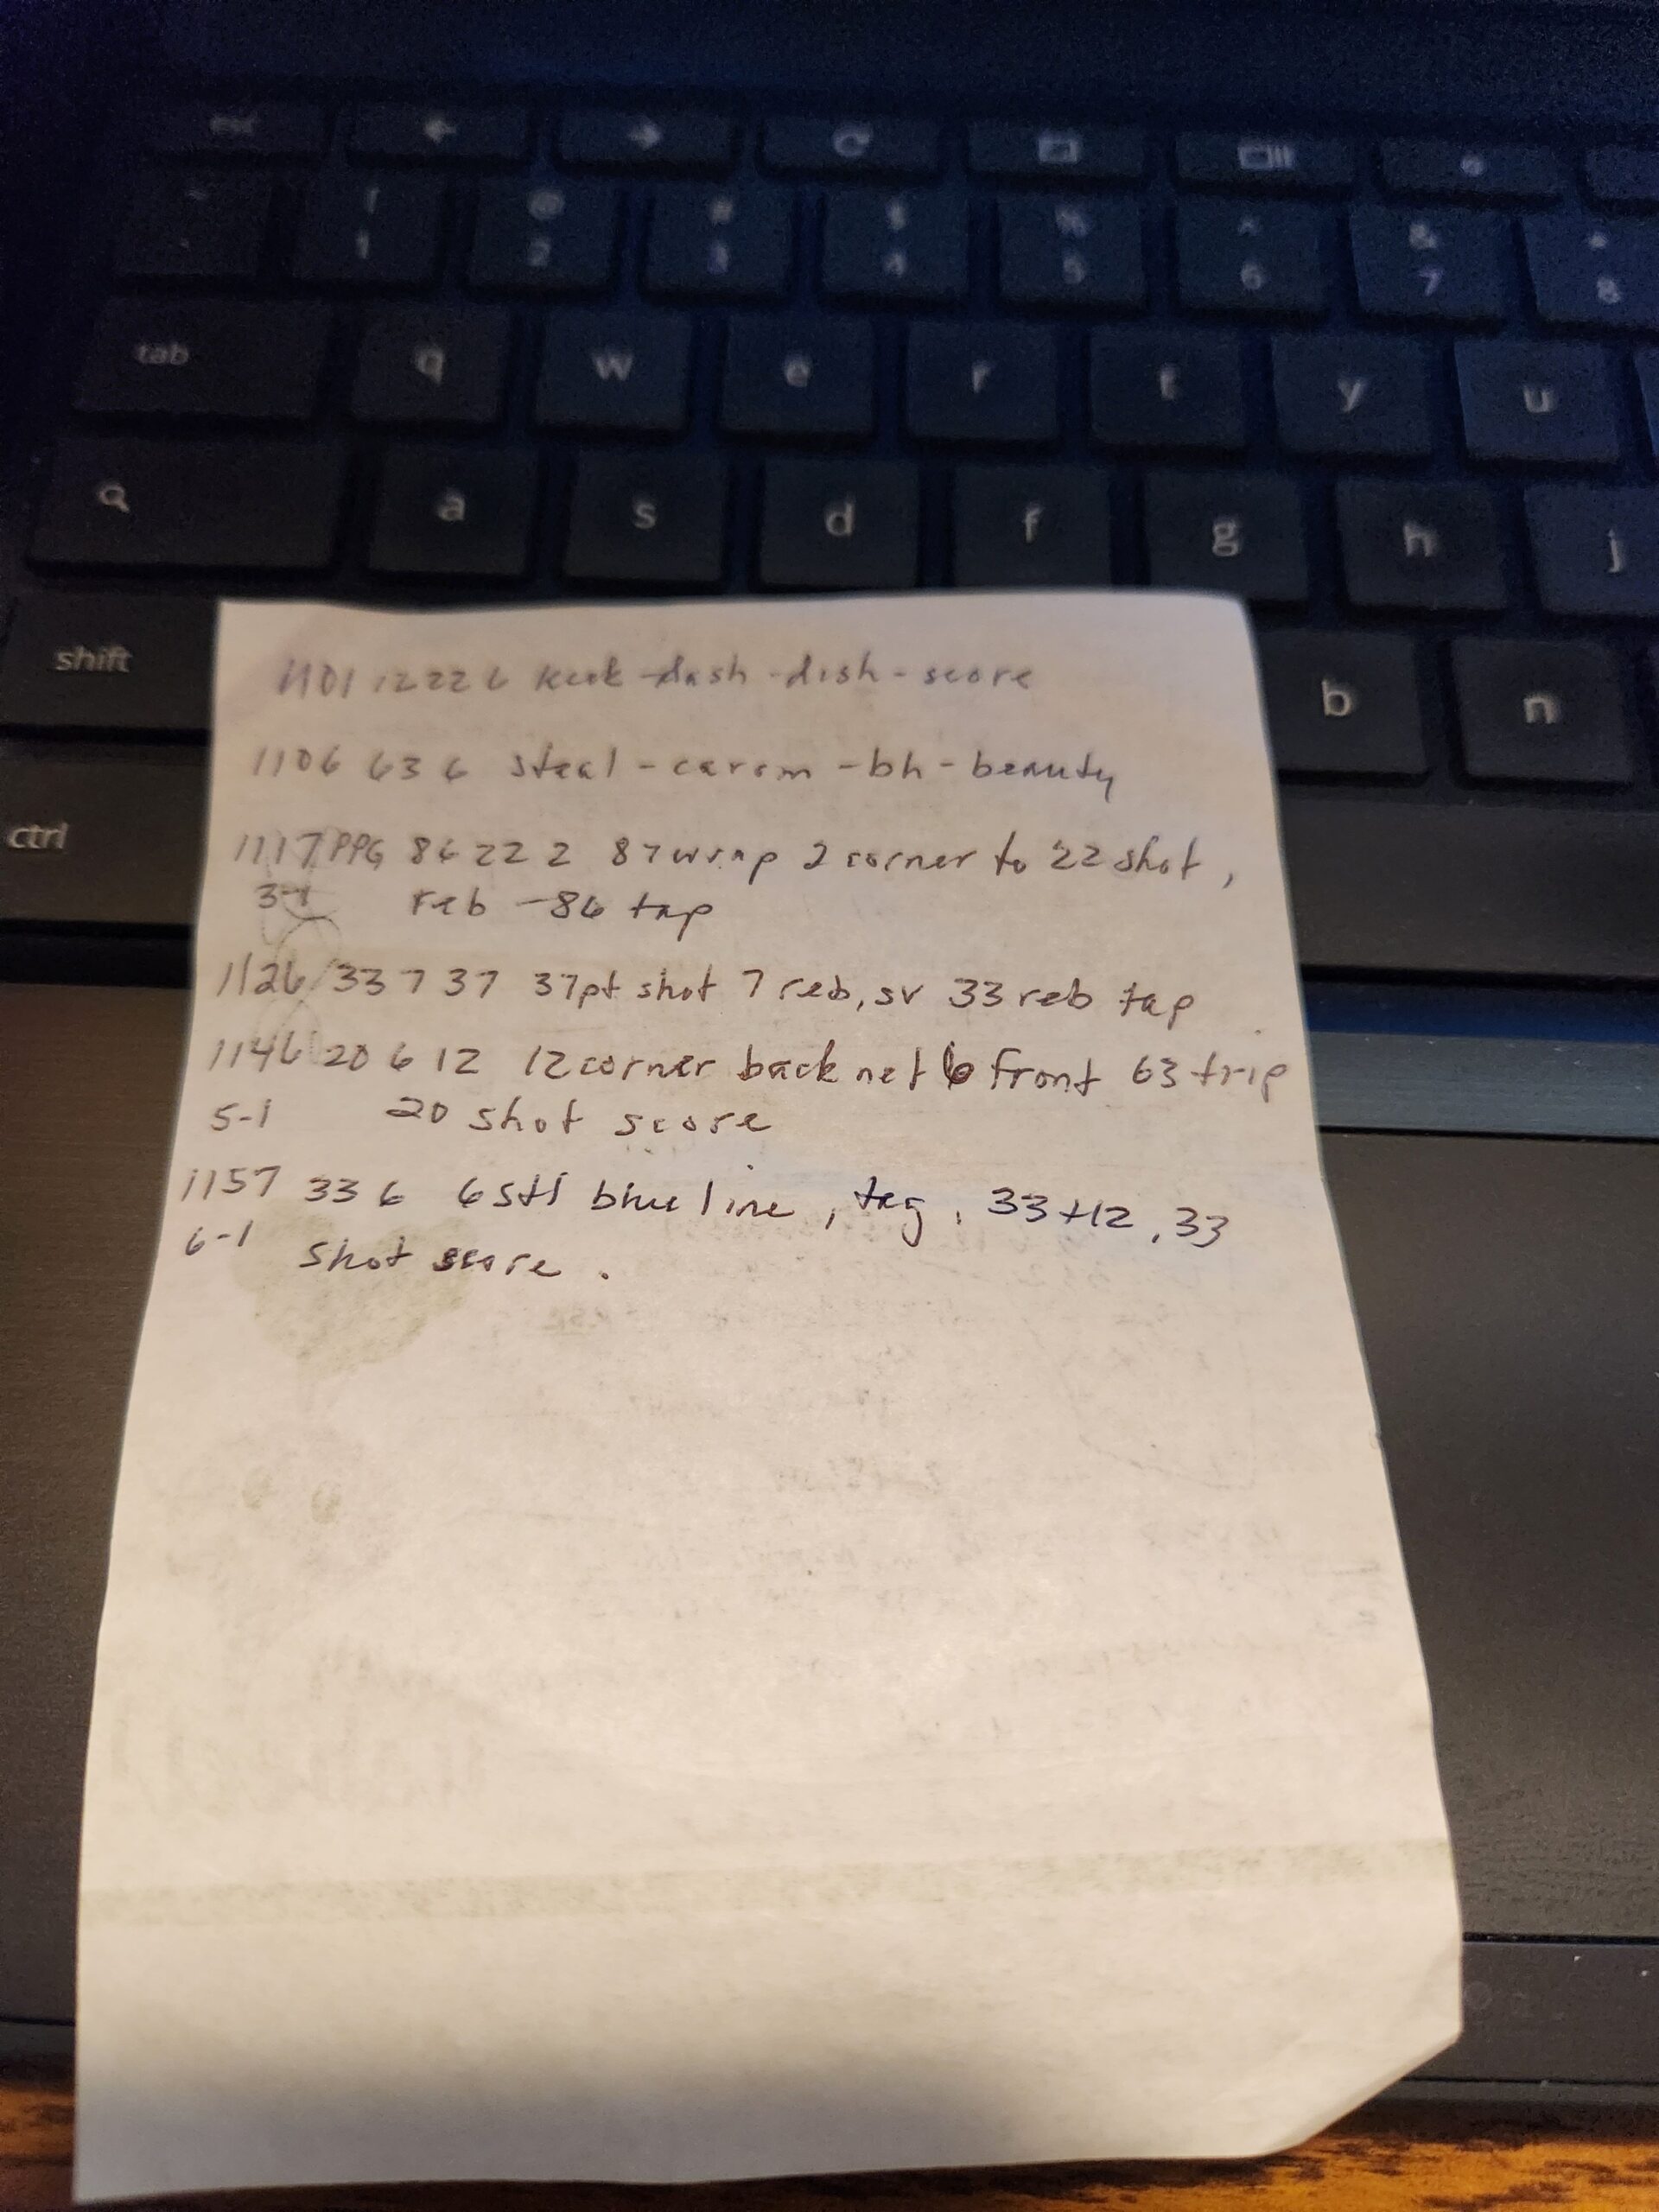 esc
! @ # $ % ^ & *
1 2 3 4 5 6 7 8
tab q w e r t y u
a s d f g h j
shift b n
ctrl
1101 12 22 6 keek-dash-dish-score
1106 63 6 steal-carom-bh-beauty
1117 PPG 86 22 2 87 wrap 2 corner to 22 shot,
3-1 reb -86 tap
1126 33 7 37 37pt shot 7 reb, sv 33 reb tap
1146 20 6 12 12 corner back net 6 front 63 trip
5-1 20 shot score
1157 33 6 6 stl blue line, tag, 33+12, 33
6-1 shot score.